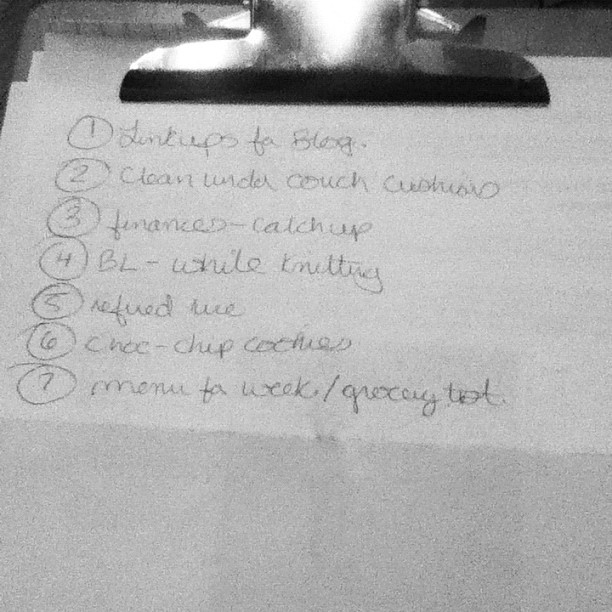 1 Linkups for Blog.
2 Clean under couch cushions
3 finances - catchup
4 BL - while knitting
5 me
6 choc-chip cookies
7 menu for week / grocery list.